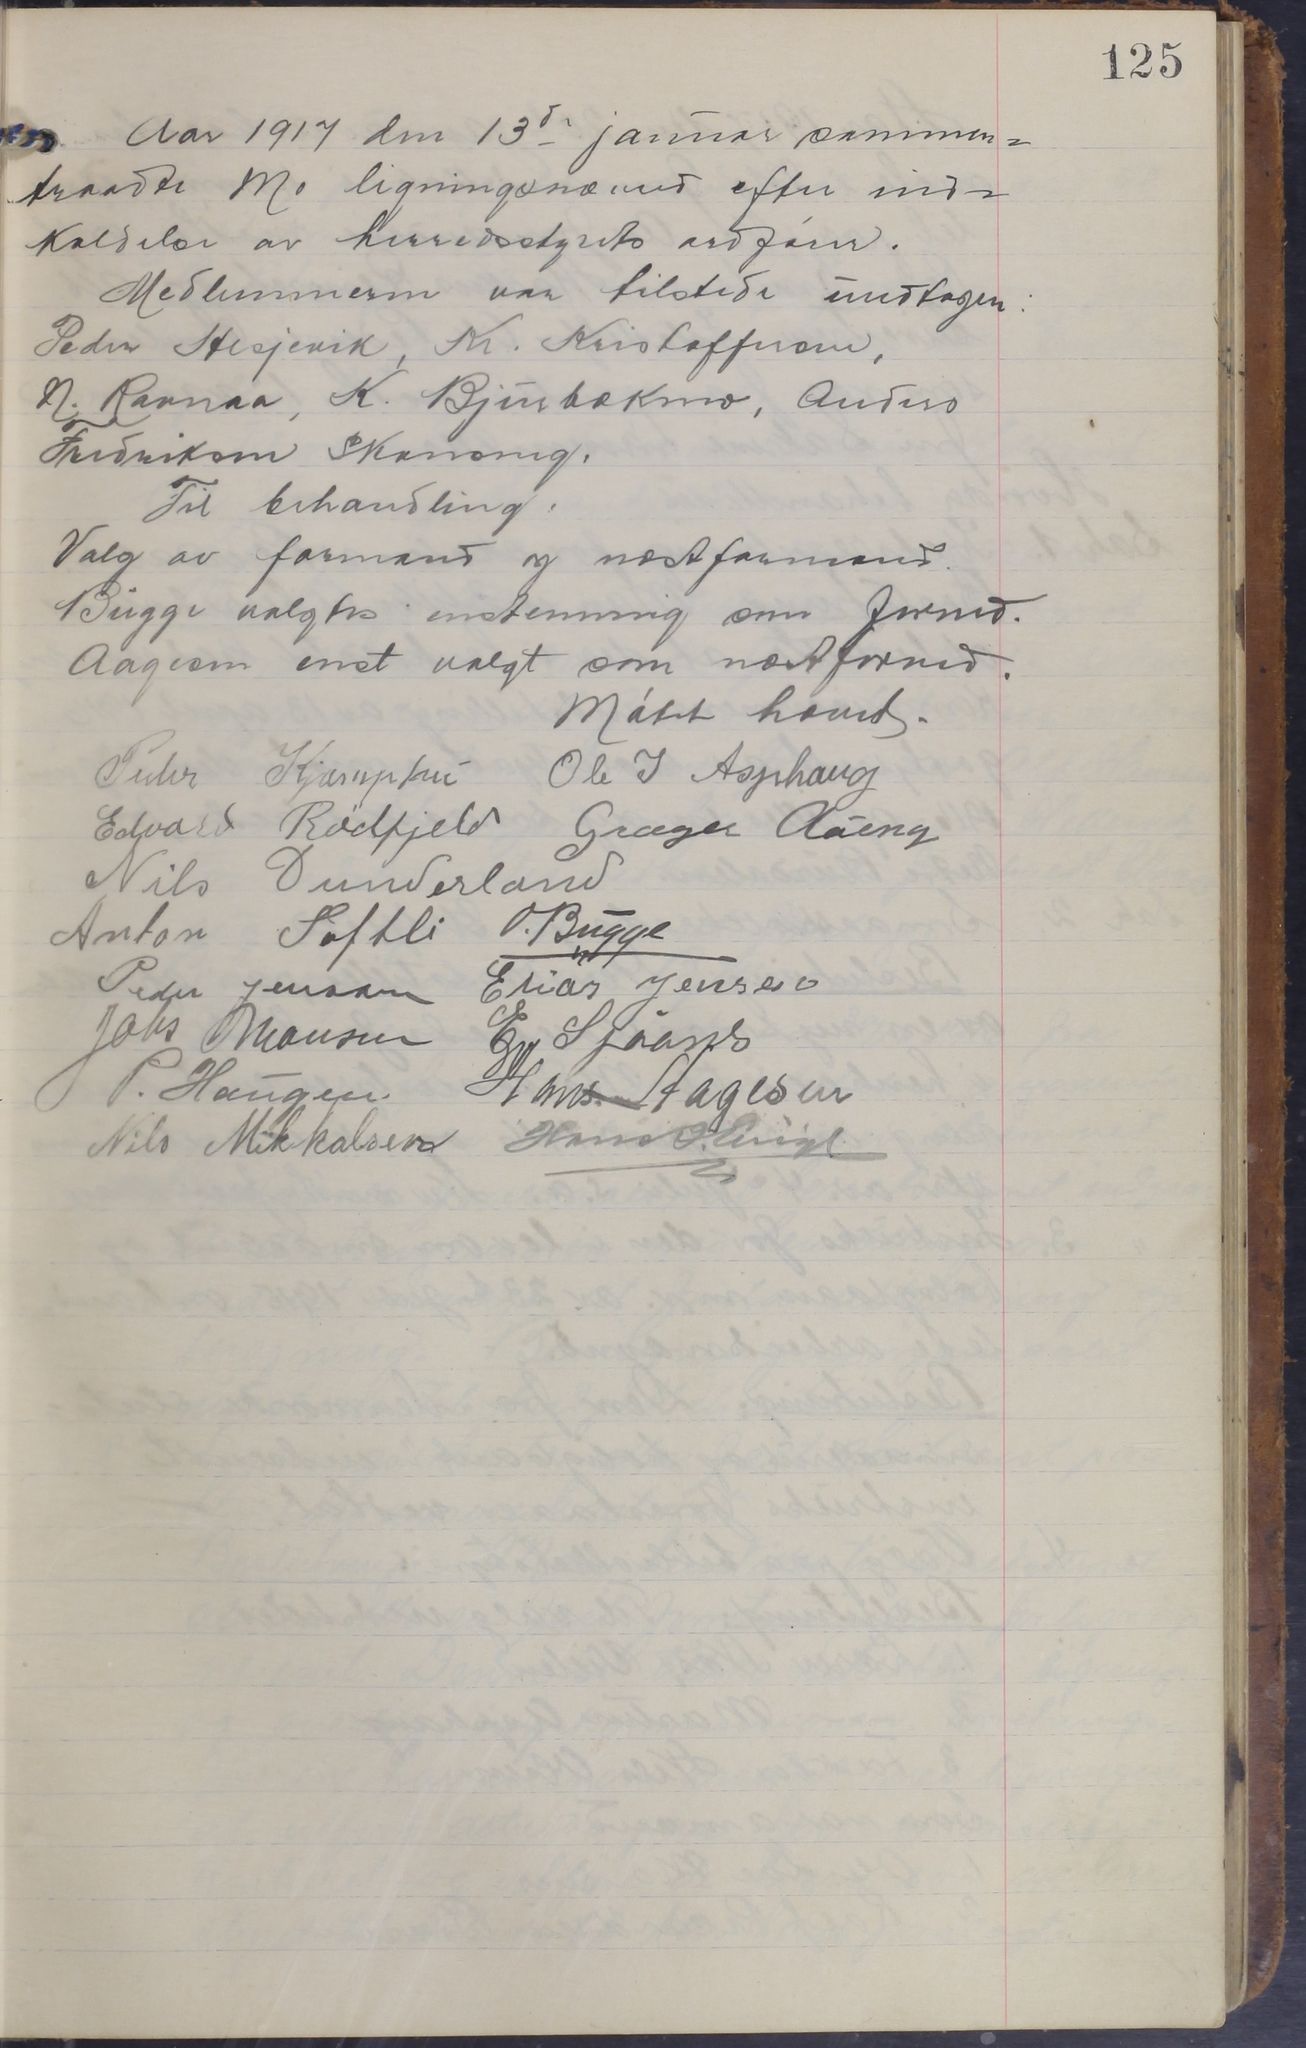 125
Aar 1917 den 13de januar sammen=
traadte Mo ligningsnævnd efter ind=
kaldelse av herredsstyrets ordfører.
Medlemmerne var tilstede undtagen:
Peder Hesjevik, Kr. Kristoffersen,
N. Ravnaa, K. Bjerbækmo, Anders
Fredriksen Skansmg.
Til behandling:
Valg av formand og næstformand.
Bugge valgtes enstemmig som formd.
Aagesen enst valgt som næstformd.
Møtet hævet.
Peder Kjæmphei Ole J Asphaug
Edvard Rødfjeld Græger Aaeng
Nils Dunderland
Anton Saftli O. Bugge
Peder Jenssen Elias Jensen
Johs Monsen E Sjåands
P. Haugen Hans Aagesen
Nils Mikkalsen Hans